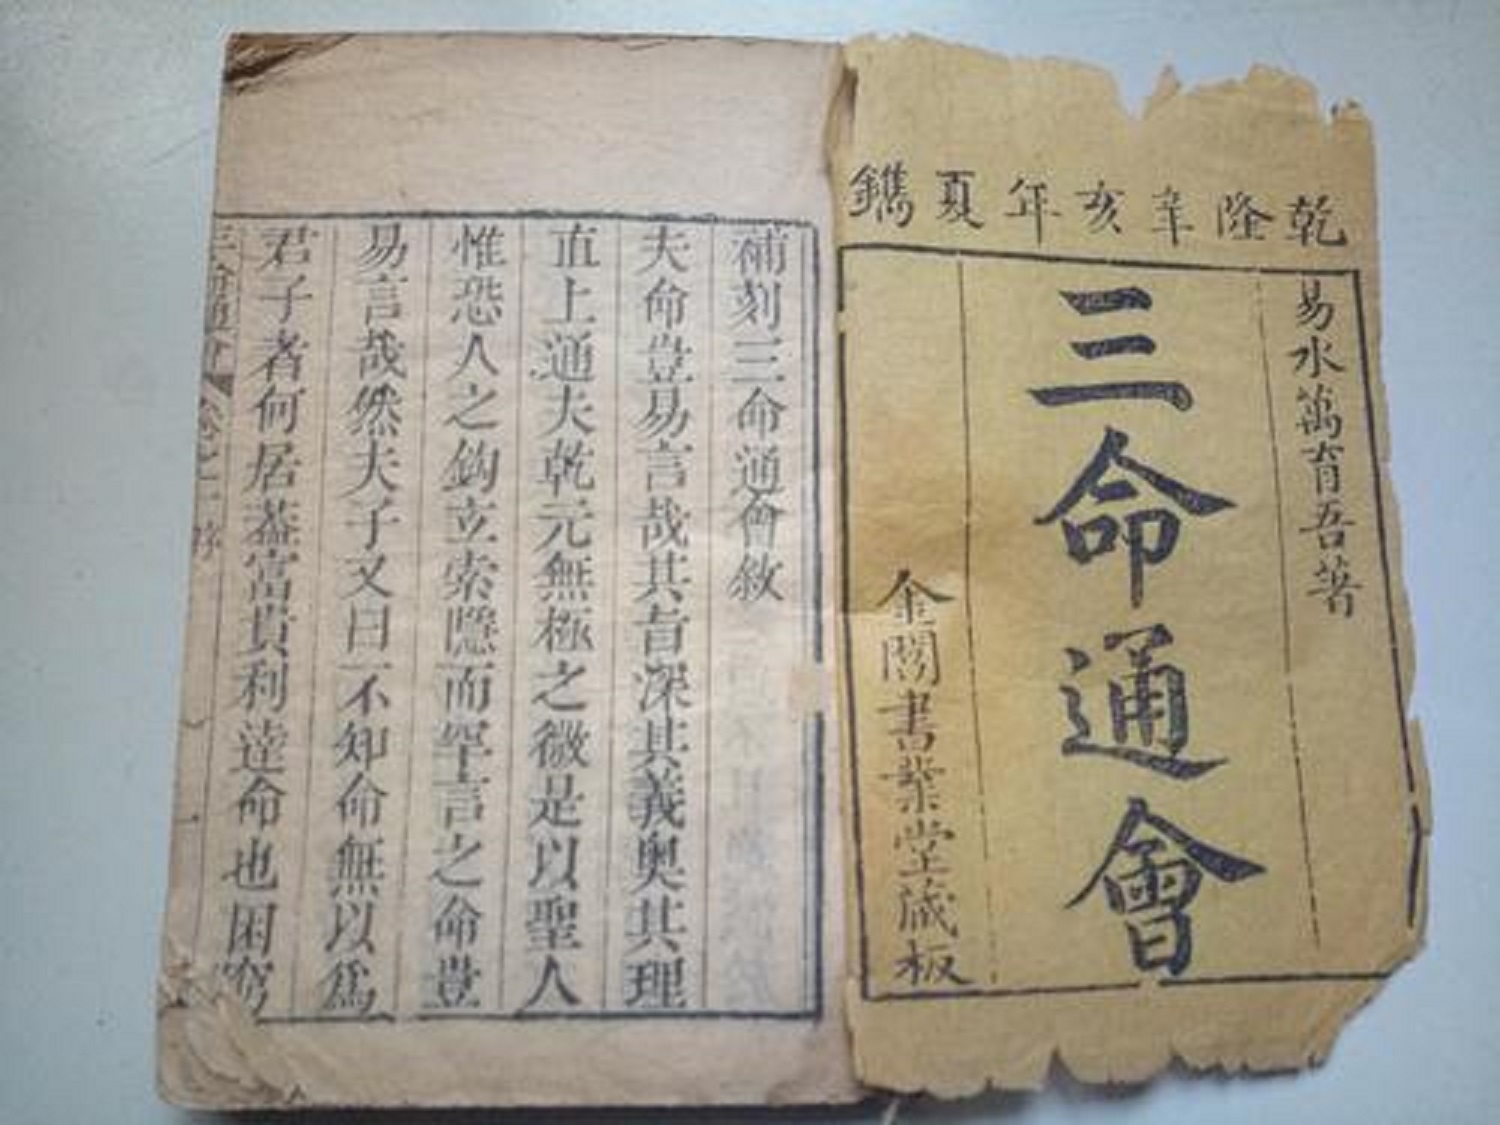 乾隆辛亥年夏鐫
易水萬育吾著
三命通會
金閶書業堂藏板
補刻三命通會敘
夫命豈易言哉其旨深其義奧其理
直上通夫乾元無極之微是以聖人
惟恐人之鈎立索隱而罕言之命豈
易言哉然夫子又曰不知命無以爲
君子者何居葢富貴利達命也困窮
三命通會 卷之一 序 一